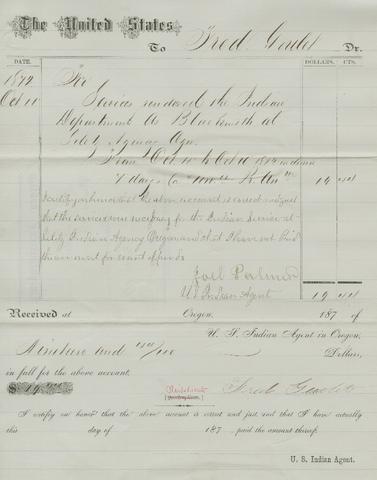 The United States
To Fred Dr.
DATE. DOLLARS. CTS.
1872 For
Oct 10 Services rendered the Indian
Department as Blacksmith at
Siletz Agency Ogn
From Oct to Oct 10 1872
days
I certify on honor that the above account is correct and just
that the services were necessary for the Indian Service at
Siletz Indian Agency Oregon and that I have not paid
the amount for want of funds
Joel Palmer
U S Indian Agent 19
Received at Oregon, 187 of
U. S. Indian Agent in Oregon,
Nineteen and /100 Dollars,
in full for the above account.
$19
Duplicate
Fred
I certify on honor that the above account is correct and just and that I have actually
this day of 187 , paid the amount thereof.
U. S. Indian Agent.